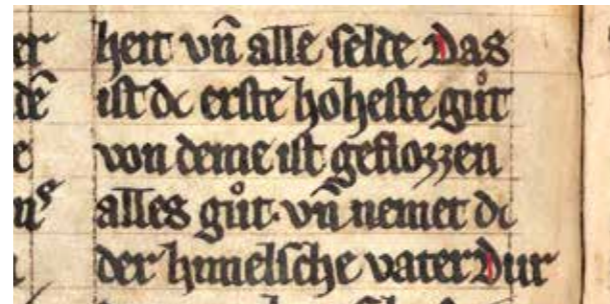 er heit vn̄ alle selde Das
dē ist dc erste hoheste gůt
e von deme ist geflozzen
alles gůt· vn̄ nemet dc
der himelsche vater Dur